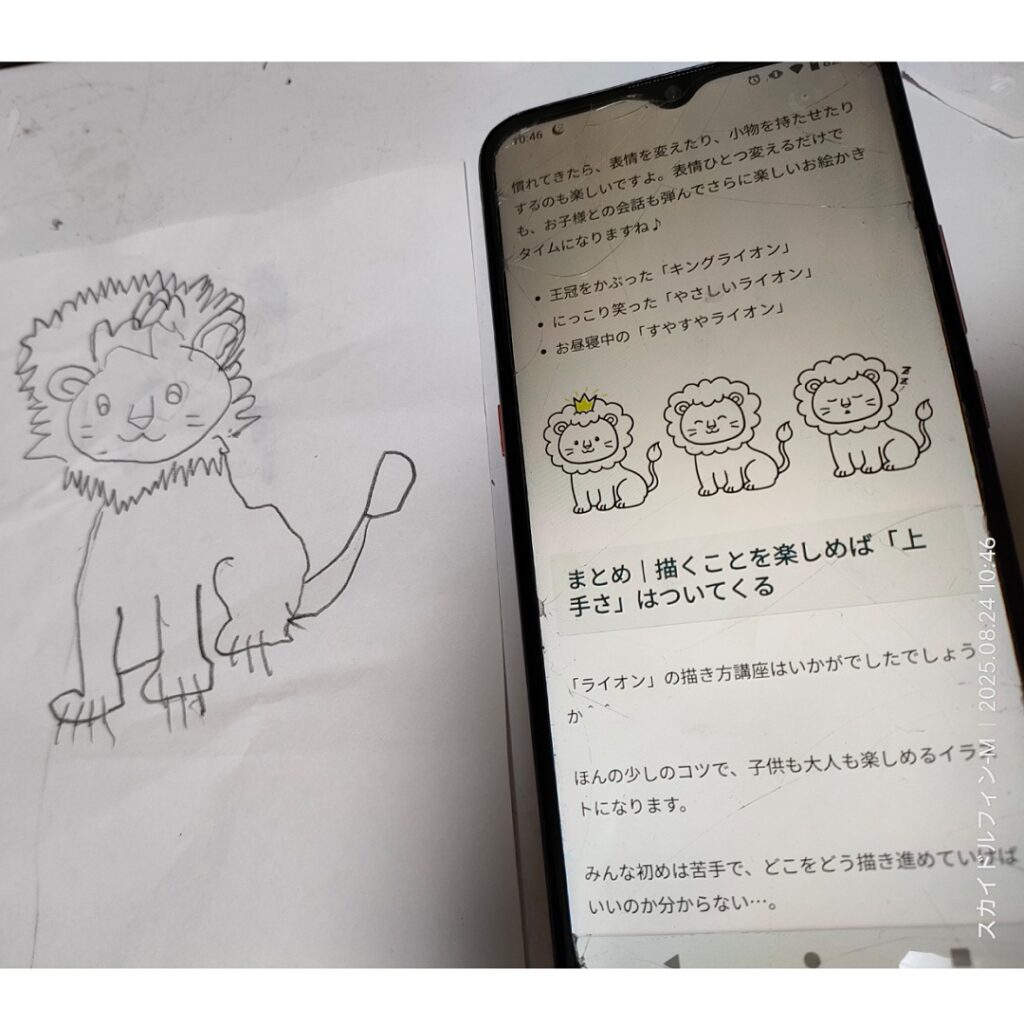 10:46
慣れてきたら、表情を変えたり、小物を持たせたり
するのも楽しいですよ。表情ひとつ変えるだけで
も、お子様との会話も弾んでさらに楽しいお絵かき
タイムになりますね♪
• 王冠をかぶった「キングライオン」
• にっこり笑った「やさしいライオン」
• お昼寝中の「すやすやライオン」
zzz
まとめ｜描くことを楽しめば「上
手さ」はついてくる
「ライオン」の描き方講座はいかがでしたでしょう
か^ ^
ほんの少しのコツで、子供も大人も楽しめるイラス
トになります。
みんな初めは苦手で、どこをどう描き進めていけば
いいのか分からない…。
スカイドルフィン-M | 2025.08.24 10:46